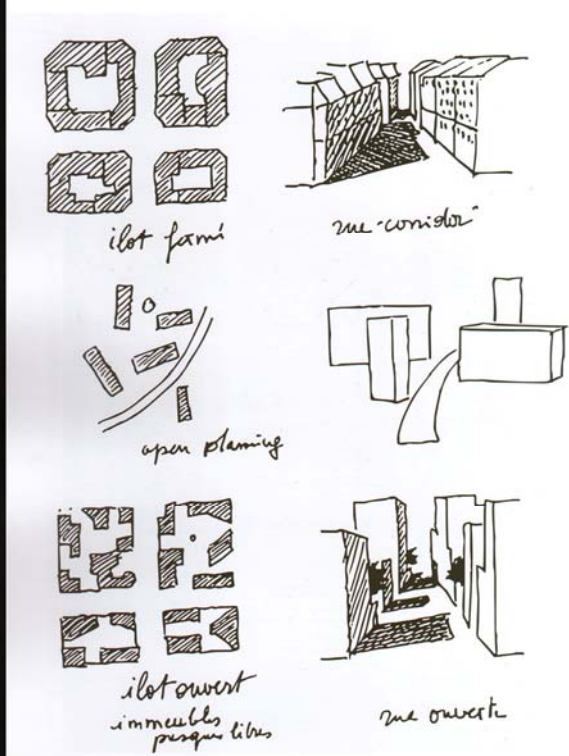 ilot fermé
rue-"corridor"
open planning
ilot ouvert
immeubles
presque libres
rue ouverte